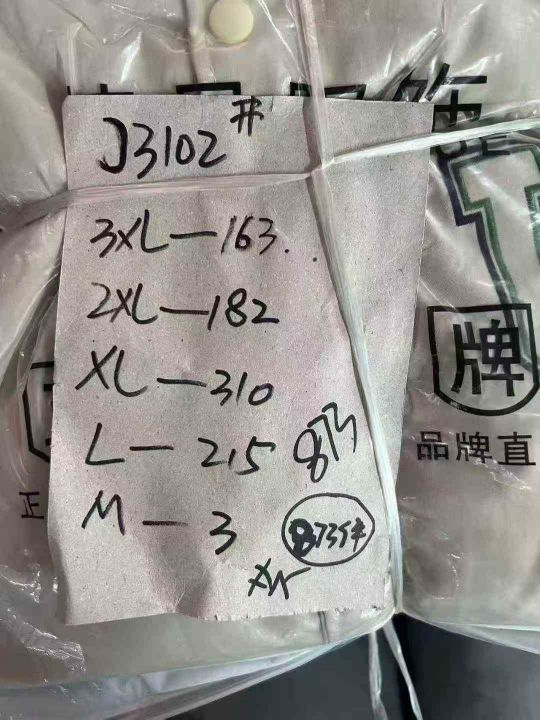 J3102#
3XL—163
2XL—182
XL—310
L—215
M—3
873件
牌
品牌直
正